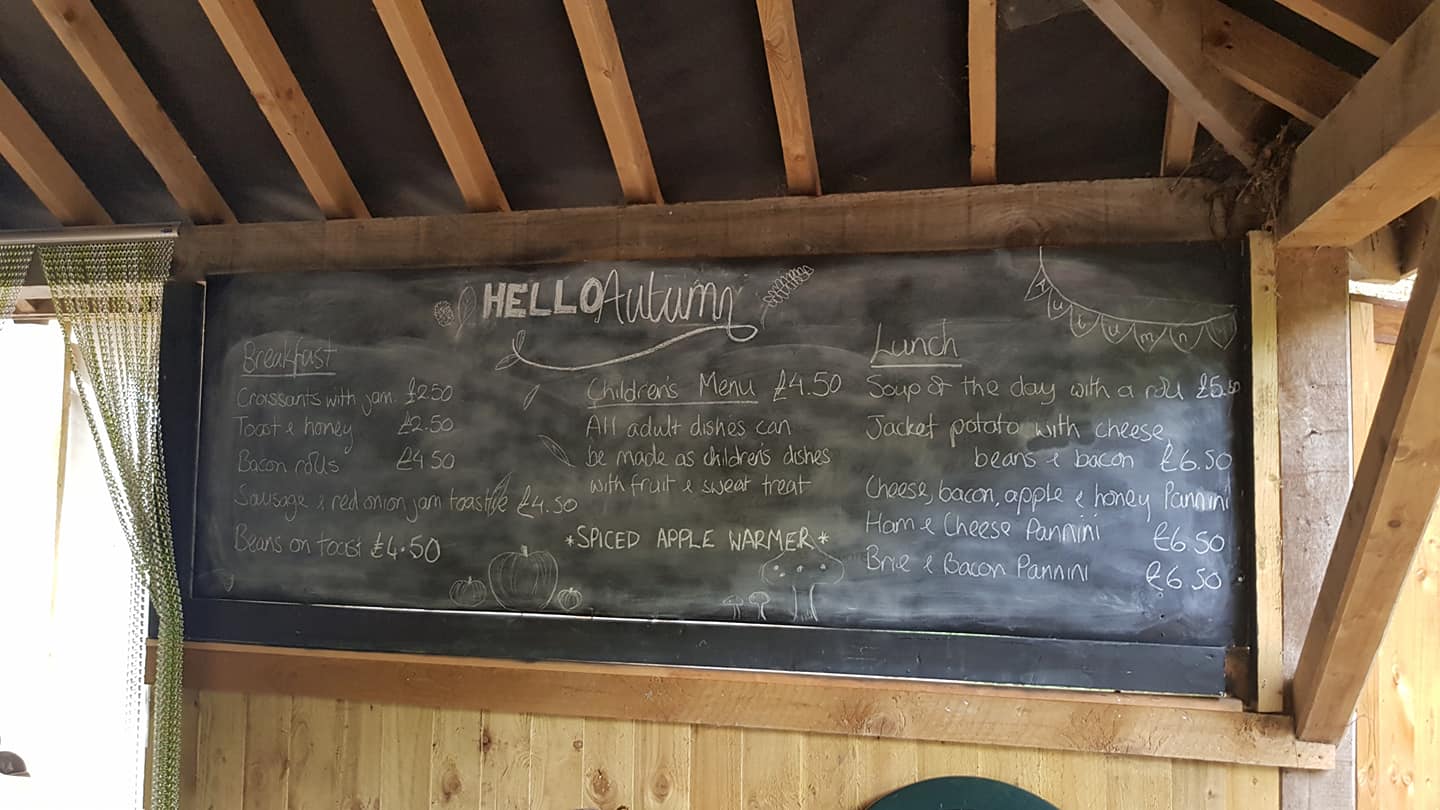 HELLO Autumn
Autumn
Breakfast
Croissants with jam. £2.50
Toast & honey £2.50
Bacon rolls £4.50
Sausage & red onion jam toastie £4.50
Beans on toast £4.50
Children's Menu £4.50
All adult dishes can
be made as children's dishes
with fruit & sweet treat
*SPICED APPLE WARMER*
Lunch
Soup of the day with a roll £5.50
Jacket potato with cheese,
beans & bacon £6.50
Cheese, bacon, apple & honey Pannini
Ham & Cheese Pannini £6.50
Brie & Bacon Pannini £6.50